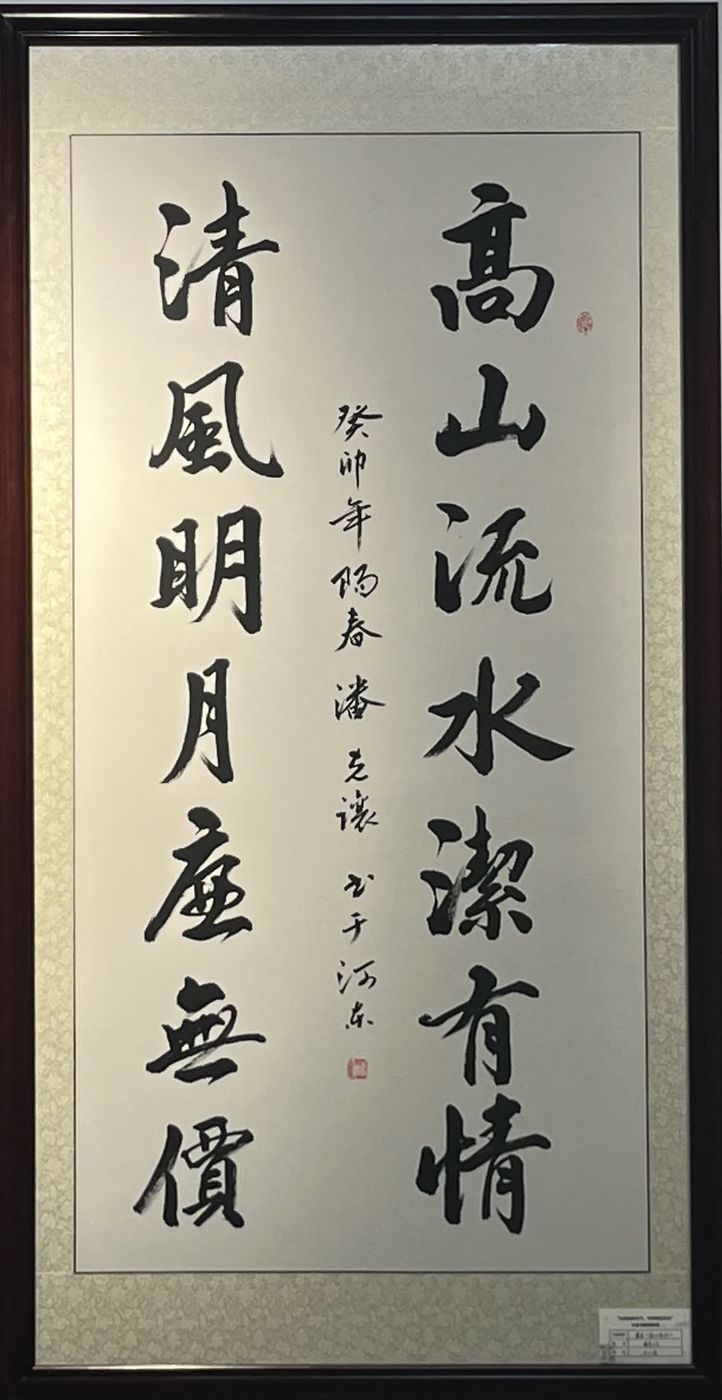 高山流水潔有情
癸卯年陽春潘克讓书于河东
清風明月廉無價